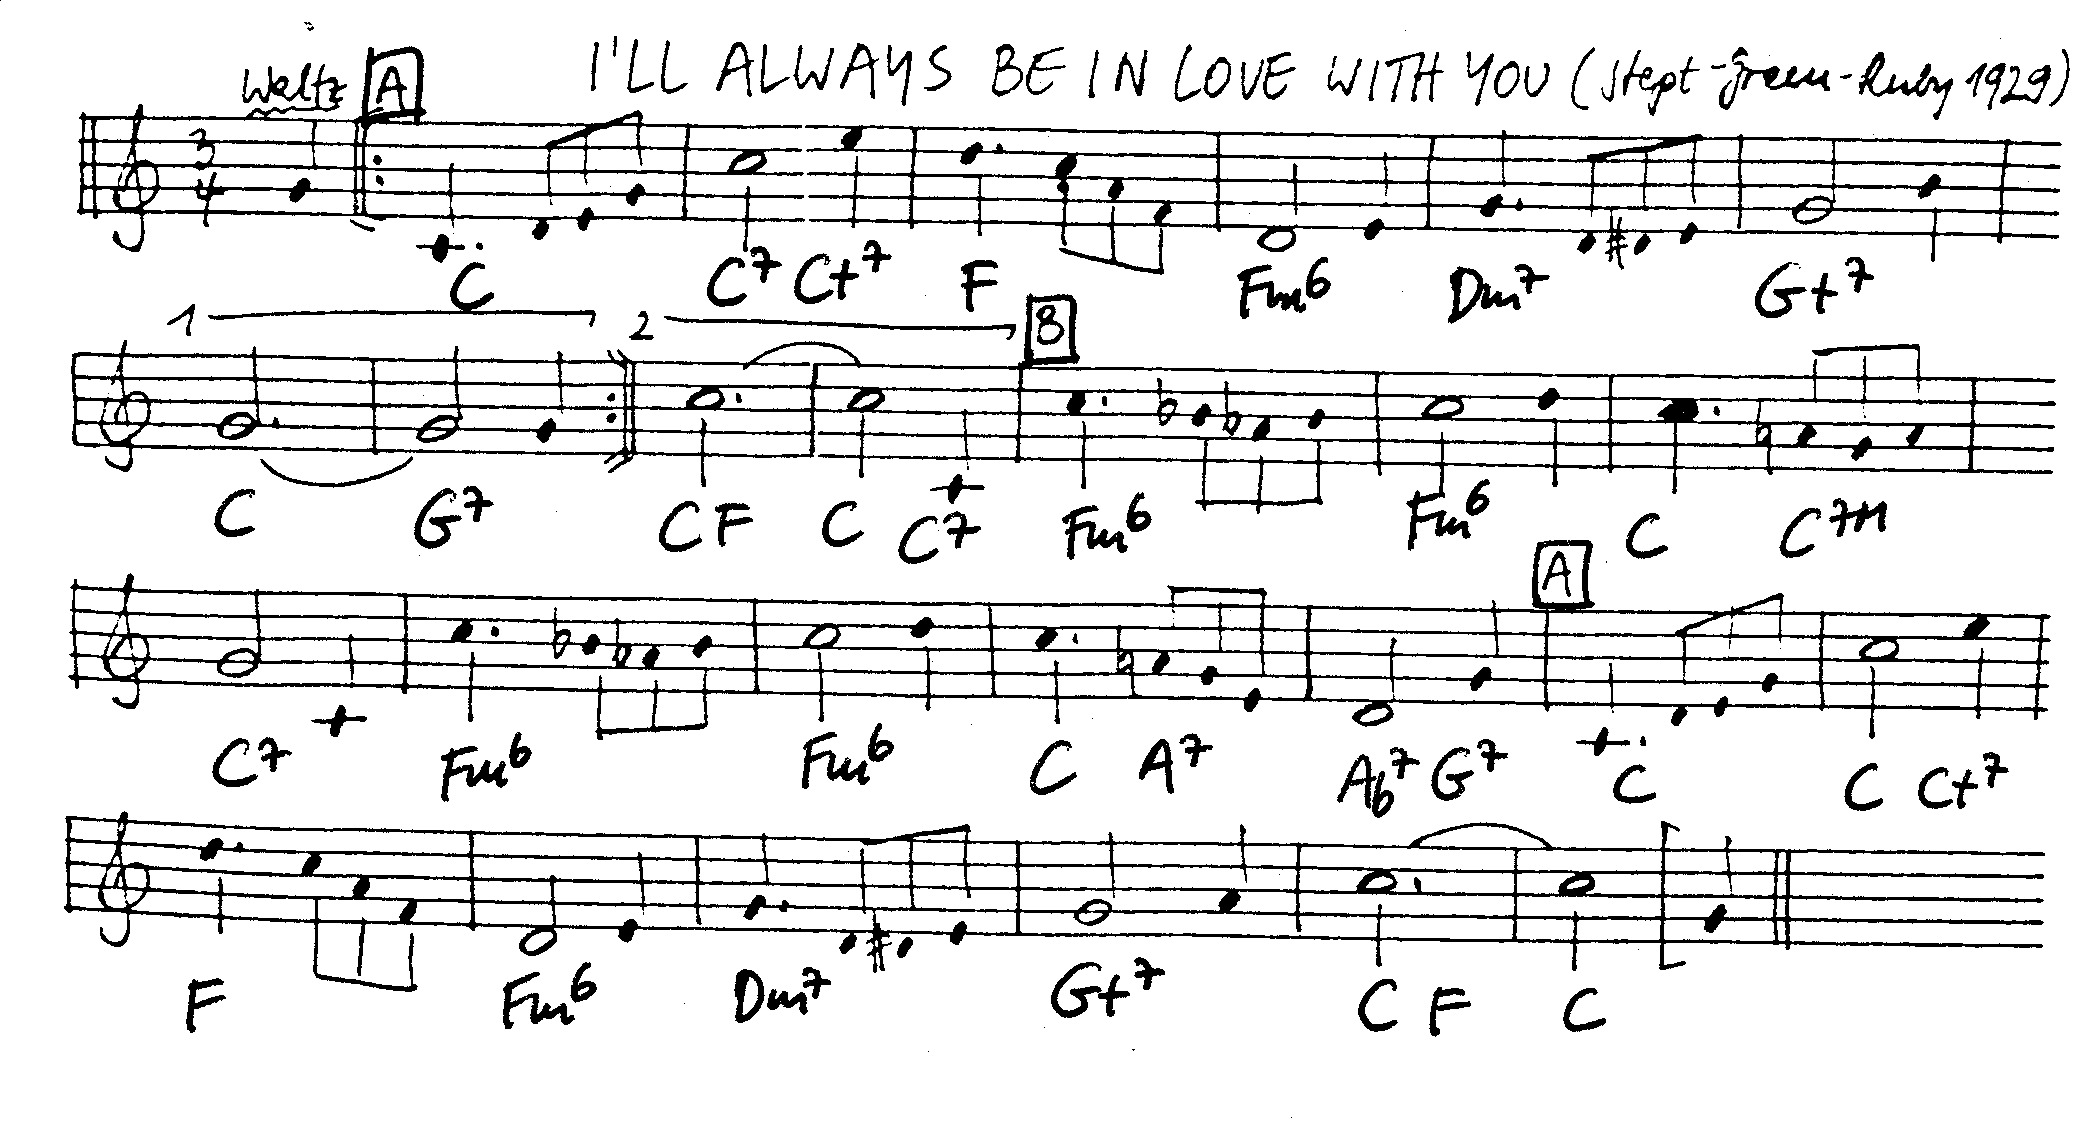 Waltz A I'LL ALWAYS BE IN LOVE WITH YOU (Stept-Green-Ruby 1929)
3 4
C C7 C+7 F Fm6 Dm7 G+7
1 2 B
C G7 C F C C7 Fm6 Fm6 C C7M
A
C7 Fm6 Fm6 C A7 Ab7 G7 C C C+7
F Fm6 Dm7 G+7 C F C